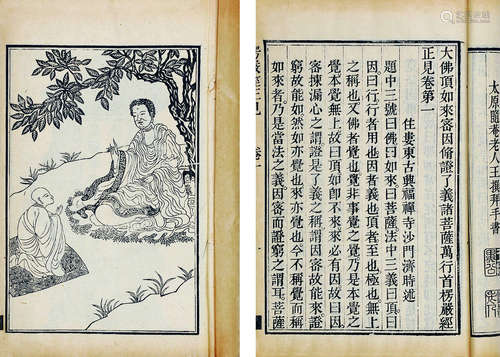 太原隨老人王掞拜手書
大佛頂如來密因脩證了義諸菩薩萬行首楞嚴經
正見卷第一
住婁東古典福禪寺沙門濟時述
題中三號曰佛曰如來曰菩薩法中三義曰頂曰
因曰行行者用也因者義也頂者至也極也無上
之稱也又佛者覺也覺非事覺之覺乃是本覺之
覺本覺無上故曰頂如卽不來來必有因故曰
密揀漏心之謂證是了義之稱謂因密故能來證
窮故能如然如亦覺也來亦覺也今不稱覺而稱
如來者乃是當法之義因密而證窮之謂耳菩薩
楞嚴經正見 卷一